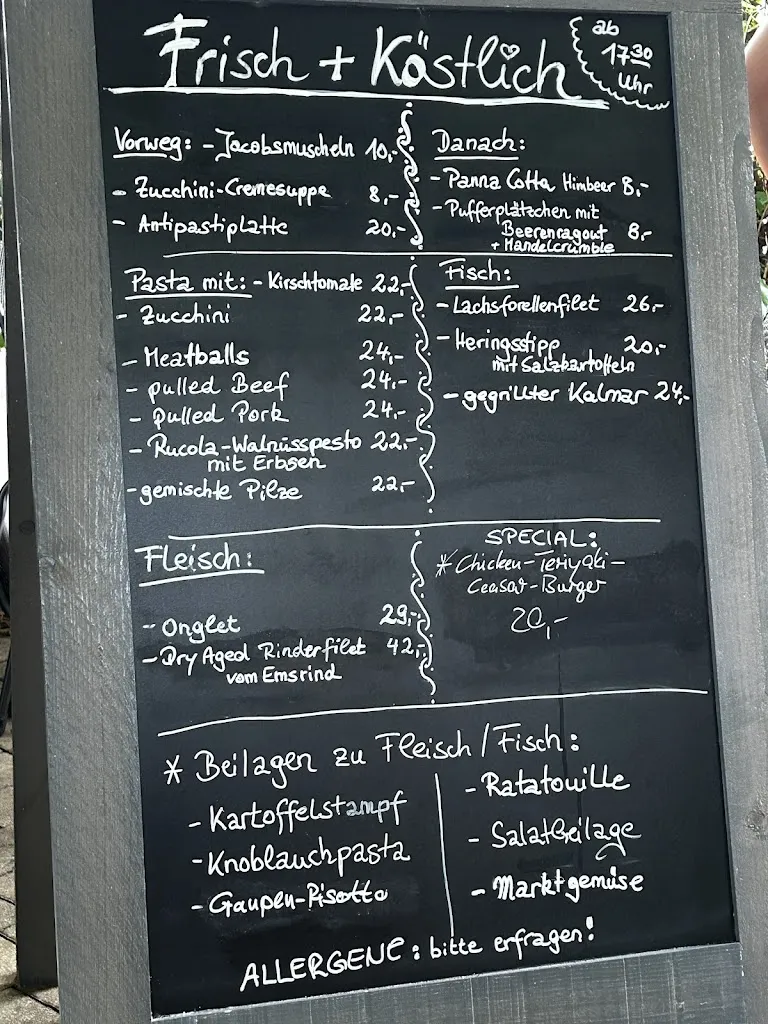 Frisch + Köstlich
ab
17³⁰
Uhr
Vorweg: - Jacobsmuscheln 10,-
- Zucchini-Cremesuppe 8,-
- Antipastiplatte 20,-
Danach:
- Panna Cotta Himbeer 8,-
- Pufferplätzchen mit
Beerenragout 8,-
+ Mandelcrumble
Pasta mit: - Kirschtomate 22,-
- Zucchini 22,-
- Meatballs 24,-
- pulled Beef 24,-
- pulled Pork 24,-
- Rucola-Walnusspesto 22,-
mit Erbsen
- gemischte Pilze 22,-
Fisch:
- Lachsforellenfilet 26,-
- Heringsstipp 20,-
mit Salzkartoffeln
- gegrillter Kalmar 24,-
Fleisch:
- Onglet 29,-
- Dry Aged Rinderfilet 42,-
vom Emsrind
SPECIAL:
* Chicken-Teriyaki-
Ceasar-Burger
20,-
* Beilagen zu Fleisch/Fisch:
- Kartoffelstampf
- Knoblauchpasta
- Graupen-Risotto
- Ratatouille
- Salatbeilage
- Marktgemüse
ALLERGENE: bitte erfragen!